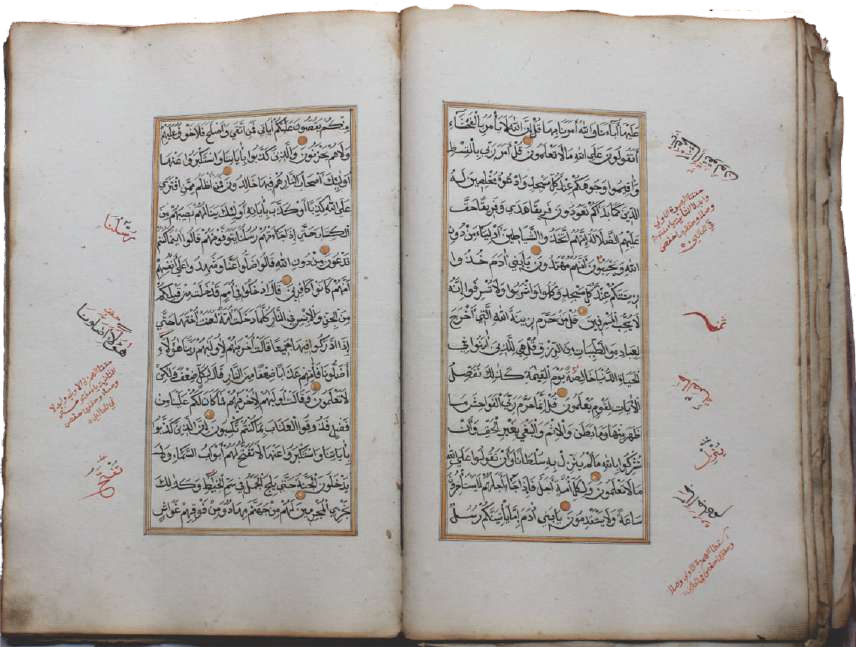 عليها اباءنا والله امرنا بها قل ان الله لا يامر بالفحشاء
اتقولون على الله ما لا تعلمون قل امر ربي بالقسط
واقيموا وجوهكم عند كل مسجد وادعوه مخلصين له
الدين كما بداكم تعودون فريقا هدى وفريقا حق
عليهم الضلالة انهم اتخذوا الشياطين اولياء من دون
الله ويحسبون انهم مهتدون يا بني ادم خذوا
زينتكم عند كل مسجد وكلوا واشربوا ولا تسرفوا انه
لا يحب المسرفين قل من حرم زينة الله التي اخرج
لعباده والطيبات من الرزق قل هي للذين امنوا في
الحيوة الدنيا خالصة يوم القيمة كذلك نفصل
الايات لقوم يعلمون قل انما حرم ربي الفواحش ما
ظهر منها وما بطن والاثم والبغي بغير الحق وان
تشركوا بالله ما لم ينزل به سلطانا وان تقولوا على الله
ما لا تعلمون ولكل امة اجل فاذا جاء اجلهم لا يستاخرون
ساعة ولا يستقدمون يا بني ادم اما ياتينكم رسل
خالصة
ينزل
منكم يقصون عليكم اياتي فمن اتقى واصلح فلا خوف عليهم
ولا هم يحزنون والذين كذبوا باياتنا واستكبروا عنها
اولئك اصحاب النار هم فيها خالدون فمن اظلم ممن افترى
على الله كذبا او كذب باياته اولئك ينالهم نصيبهم من
الكتاب حتى اذا جاءتهم رسلنا يتوفونهم قالوا اين ما كنتم
تدعون من دون الله قالوا ضلوا عنا وشهدوا على انفسهم
انهم كانوا كافرين قال ادخلوا في امم قد خلت من قبلكم
من الجن والانس في النار كلما دخلت امة لعنت اختها حتى
اذا اداركوا فيها جميعا قالت اخريهم لاوليهم ربنا هؤلاء
اضلونا فاتهم عذابا ضعفا من النار قال لكل ضعف ولكن
لا تعلمون وقالت اوليهم لاخريهم فما كان لكم علينا من
فضل فذوقوا العذاب بما كنتم تكسبون ان الذين كذبوا
باياتنا واستكبروا عنها لا تفتح لهم ابواب السماء ولا
يدخلون الجنة حتى يلج الجمل في سم الخياط وكذلك
نجزي المجرمين لهم من جهنم مهاد ومن فوقهم غواش
رسلنا
تفتح